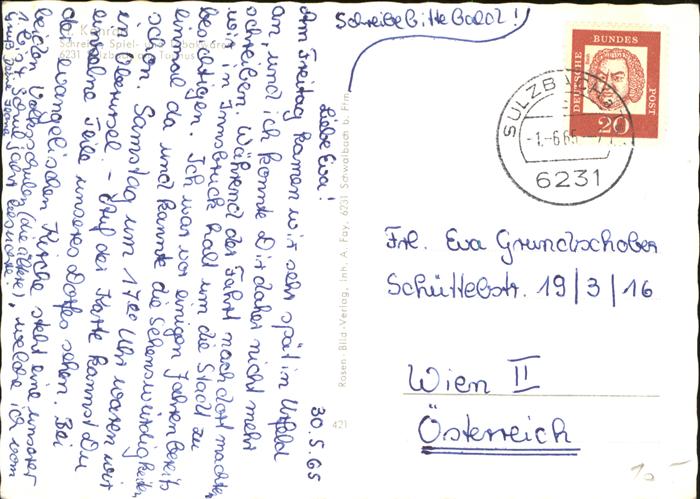 Schreibe bitte bald!
30.5.65
Liebe Eva!
Am Freitag kamen wir sehr spät in Urfeld
an, und ich konnte Dir daher nicht mehr
schreiben. Während der Fahrt nach dort machten
wir in Innsbruck halt um die Stadt zu
besichtigen. Ich war vor einigen Jahren bereits
einmal da und kannte die Sehenswürdigkeiten
schon. Samstag um 17.00 Uhr waren wir
in - Auf der Karte kannst Du
einzelne Teile unseres Dorfes sehen. Bei
der evangelischen Kirche steht eine unserer
beiden Volksschulen (die ältere), welche ich vom
1. bis 4. Schuljahr besuchte.
Gruß Deine
Schreib- Spiel- und
6231 Sulzbach am Taunus
Rosen-Bild-Verlag, Inh. A. Fay, 6231 Schwalbach b. Ffm.
421
DEUTSCHE BUNDESPOST
20
SULZBACH
-1.-6.65-
6231
Frl. Eva Grundschober
Schüttelstr. 19/3/16
Wien II
Österreich
10.-